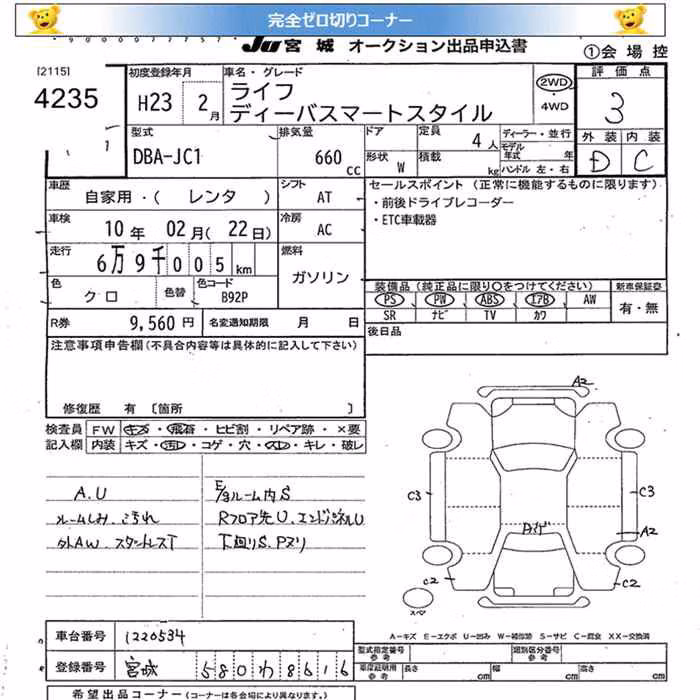 完全ゼロ切りコーナー
JU 宮城 オークション出品申込書
①会場控
[2115]
4235
初度登録年月
H23 2月
車名・グレード
ライフ
ディーバスマートスタイル
2WD
・
4WD
評価点
3
外装 内装
D C
型式
DBA-JC1
排気量
660 cc
ドア
形状 W
定員 4人
積載 kg
ディーラー・並行
モデル年式 年
ハンドル 左・右
車歴
自家用・( レンタ )
シフト
AT
車検
10年 02月( 22日)
冷房
AC
走行
6万9千005km
燃料
ガソリン
色
クロ
色替
色コード
B92P
R券 9,560円
名変通知期限 月 日
セールスポイント (正常に機能するものに限ります)
・前後ドライブレコーダー
・ETC車載器
装備品 (純正品に限り○をつけてください)
新車保証書
PS PW ABS エアB AW
有・無
SR ナビ TV カワ
後日品
注意事項申告欄(不具合内容等は具体的に記入して下さい)
修復歴 有 〔箇所 〕
検査員 FW キズ・飛石・ヒビ割・リペア跡・×要
記入欄 内装 キズ・汚れ・コゲ・穴・スレ・キレ・破レ
A.U
ルームしみ、こげれ
外AW、スタッドレスT
E/gルーム内S
Rフロア先U、エンドパネルU
下廻りS、Pヌリ
A2
C3
C3
A2
C2
C2
スペア
A-キズ E-エクボ U-凹み W-補修跡 S-サビ C-腐食 XX-交換済
車台番号 1220534
登録番号 宮城 580わ8616
型式指定番号
参考
類別区分番号
参考
車庫証明用
参考
長さ cm
幅 cm
高さ cm
希望出品コーナー (コーナーは各会場により異なります。)